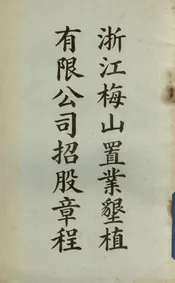 浙江梅山置業墾植
有限公司招股章程